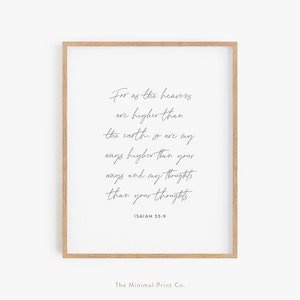 For as the heavens
are higher than
the earth, so are my
ways higher than your
ways and my thoughts
than your thoughts
ISAIAH 55:9
The Minimal Print Co.